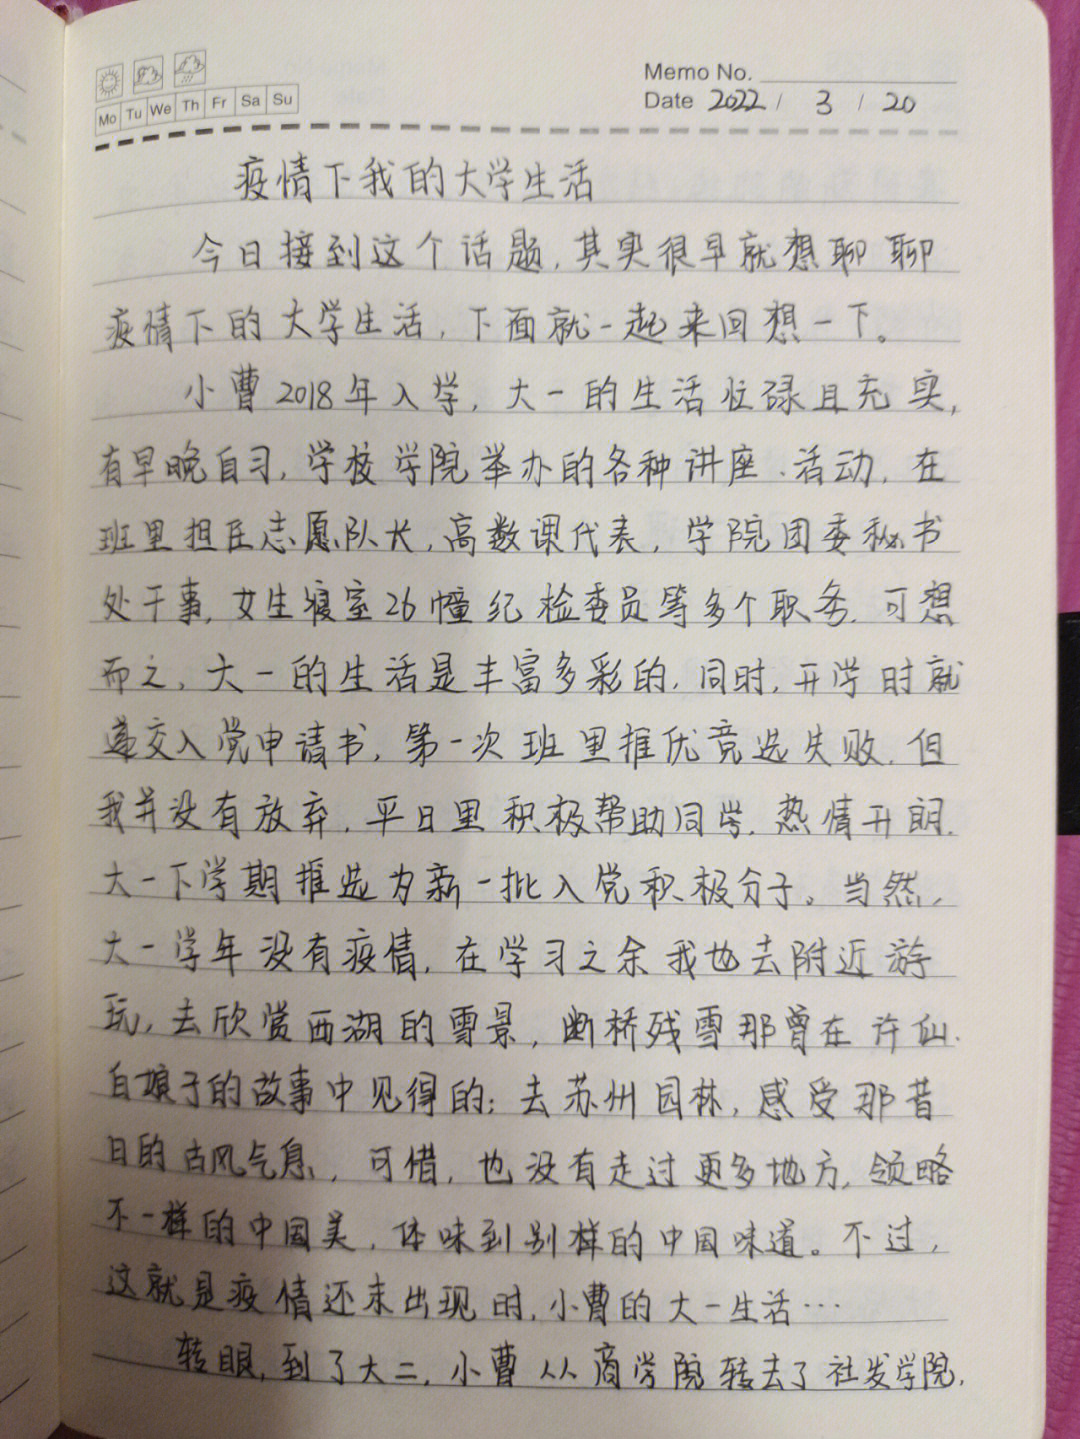 Memo No.
Mo Tu We Th Fr Sa Su
Date 2022 / 3 / 20
疫情下我的大学生活
今日接到这个话题,其实很早就想聊聊
疫情下的大学生活,下面就一起来回想一下。
小曹2018年入学,大一的生活忙碌且充实,
有早晚自习,学校学院举办的各种讲座、活动,在
班里担任志愿队长,高数课代表,学院团委秘书
处干事,女生寝室26幢纪检委员等多个职务,可想
而之,大一的生活是丰富多彩的,同时,开学时就
递交入党申请书,第一次班里推优竞选失败,但
我并没有放弃,平日里积极帮助同学,热情开朗,
大一下学期推选为新一批入党积极分子。当然,
大一学年没有疫情,在学习之余我也去附近游
玩,去欣赏西湖的雪景,断桥残雪那曾在许仙、
白娘子的故事中见得的;去苏州园林,感受那昔
日的古风气息,可惜,也没有走过更多地方,领略
不一样的中国美,体味到别样的中国味道。不过,
这就是疫情还未出现时,小曹的大一生活…
转眼,到了大二,小曹从商学院转去了社发学院,